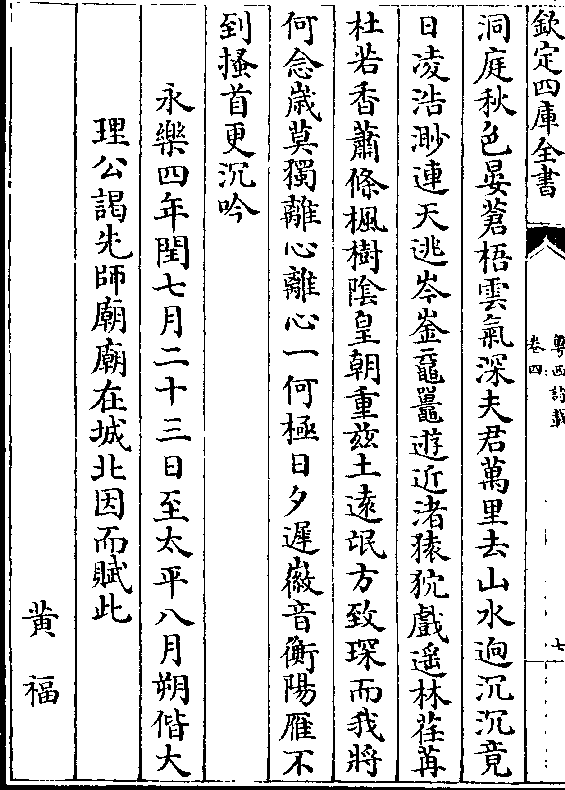 欽定四庫全書
粵西詩載
卷四
七
洞庭秋色晏蒼梧雲氣深夫君萬里去山水迥沉沉竟
日凌浩渺連天逃岑崟黿鼉遊近渚猿狖戲遥林荏苒
杜若香蕭條楓樹陰皇朝重兹土遠氓方致琛而我將
何念歲莫獨離心離心一何極日夕遲徽音衡陽雁不
到搔首更沉吟
永樂四年閏七月二十三日至太平八月朔偕大
理公謁先師廟廟在城北因而賦此
黄福